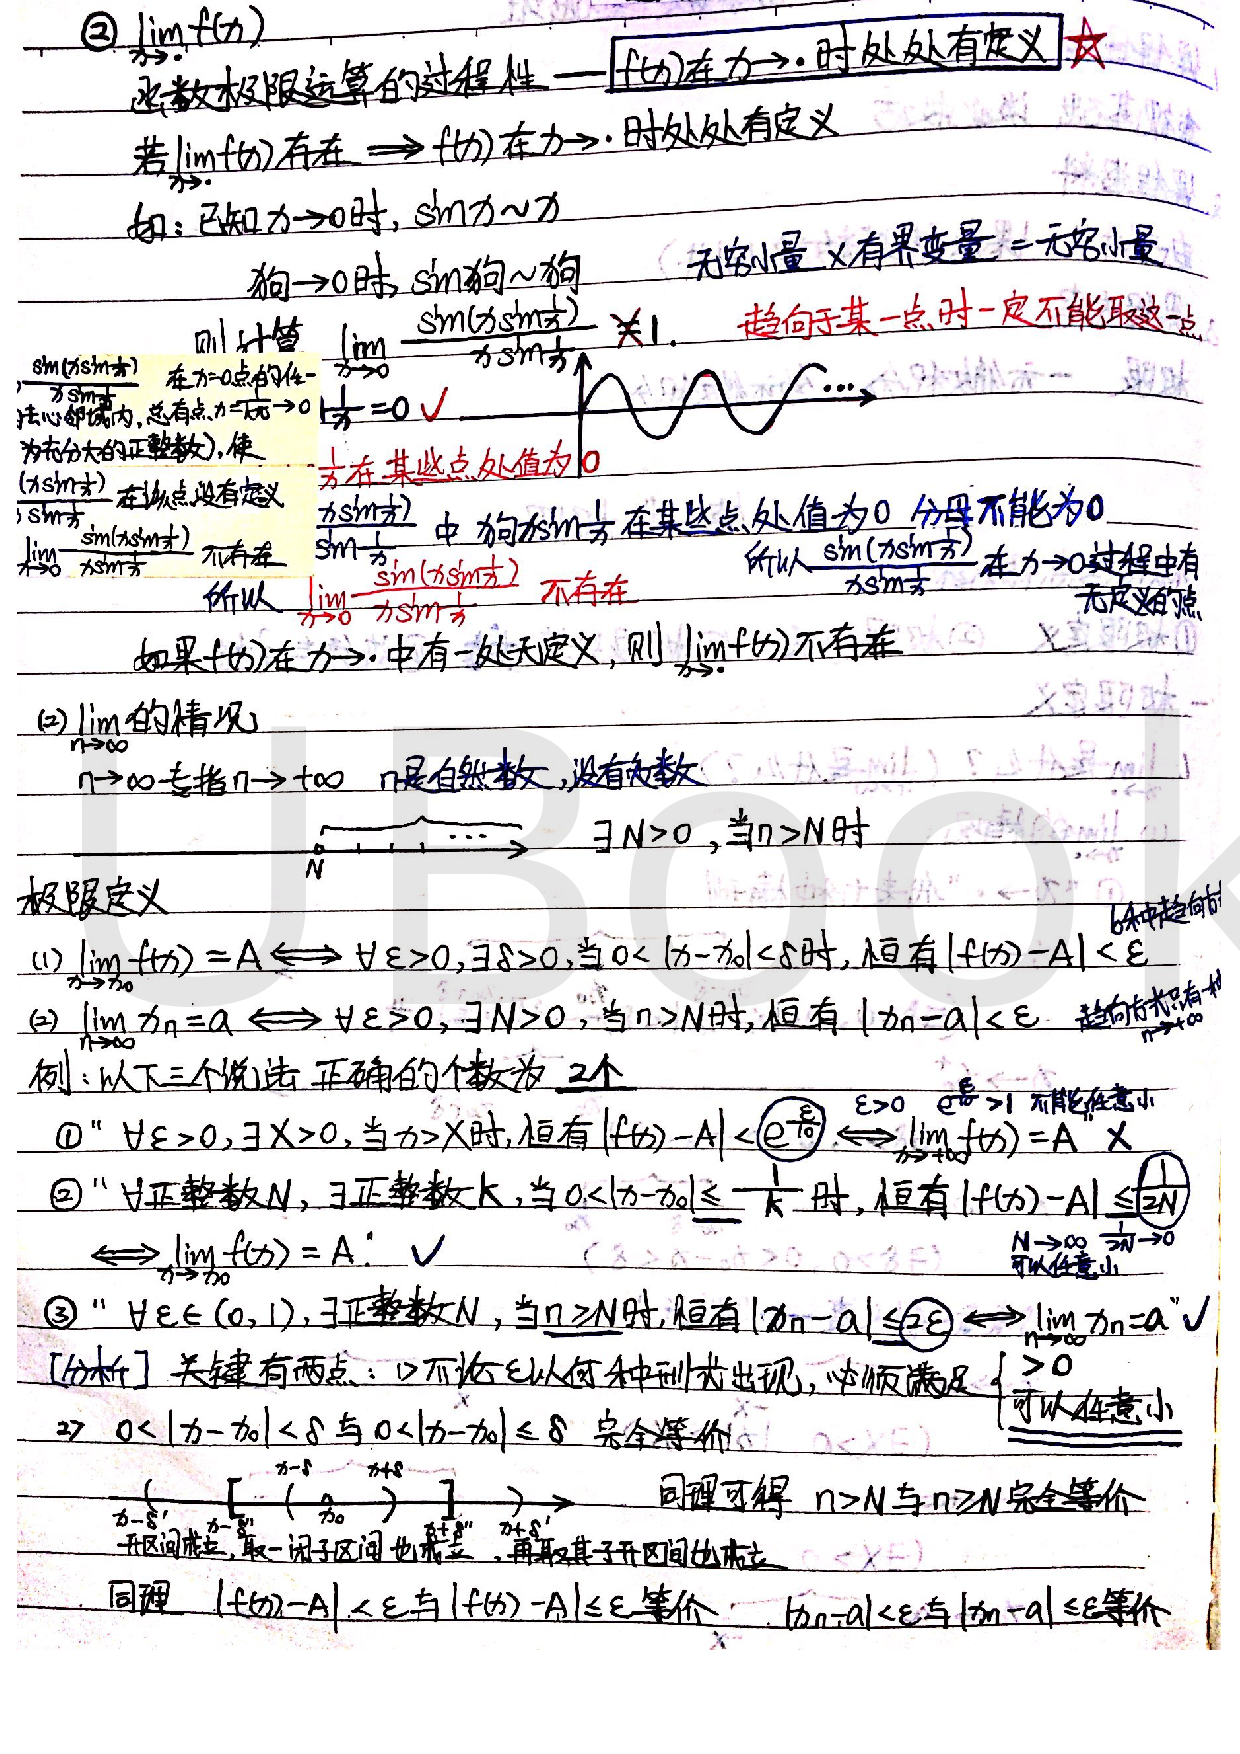 ② lim f(x)
x→·
函数极限运算的过程性 — f(x)在x→·时处处有定义 ☆
若 lim f(x) 存在 ⟹ f(x)在x→·时处处有定义
x→·
如：已知x→0时，sinx~x
无穷小量×有界变量=无穷小量
狗→0时，sin狗~狗
则计算 lim sin(xsin1/x)/xsin1/x ≠1.
x→0
趋向于某一点时一定不能取这一点
sin(xsin1/x)/xsin1/x 在x=0点的任一
去心邻域内，总有点x=1/kπ→0
为充分大的正整数)，使
(xsin1/x)/xsin1/x 在该点没有定义
lim sin(xsin1/x)/xsin1/x 不存在
x→0
1/x=0 ✓
1/x在某些点处值为0
xsin1/x)/sin1/x 中 狗xsin1/x在某些点处值为0 分母不能为0
所以 sin(xsin1/x)/xsin1/x 在x→0过程中有
无定义的点
所以 lim sin(xsin1/x)/xsin1/x 不存在
x→0
如果f(x)在x→·中有一处无定义，则 lim f(x)不存在
x→·
(2) lim 的情况
n→∞
n→∞专指n→+∞ n是自然数，没有负数
∃N>0，当n>N时
N
极限定义
6种趋向方
(1) lim f(x)=A ⟺ ∀ε>0,∃δ>0,当0<|x-x₀|<δ时,恒有|f(x)-A|<ε
x→x₀
(2) lim xn=a ⟺ ∀ε>0,∃N>0,当n>N时,恒有|xn-a|<ε
n→∞
趋向方式只有一种
n→+∞
例：以下三个说法正确的个数为 2个
ε>0 e^(ε/10)>1 不能任意小
① "∀ε>0,∃X>0,当x>X时,恒有|f(x)-A|<e^(ε/10) ⟺ lim f(x)=A" ×
x→+∞
② "∀正整数N,∃正整数K,当0<|x-x₀|≤1/K时,恒有|f(x)-A|≤1/2N
⟺ lim f(x)=A." ✓
x→x₀
N→∞ 1/2N→0
可以任意小
③ "∀ε∈(0,1),∃正整数N,当n≥N时,恒有|xn-a|≤2ε ⟺ lim xn=a" ✓
n→∞
[分析] 关键有两点：1>不论ε以何种形式出现,必须满足{ >0
可以任意小
2> 0<|x-x₀|<δ与0<|x-x₀|≤δ 完全等价
x-δ x+δ
x-δ' x-δ" x₀ x+δ" x+δ'
同理可得 n>N与n≥N完全等价
开区间成立,取一闭子区间也成立,再取其子开区间也成立
同理 |f(x)-A|<ε与|f(x)-A|≤ε等价 |xn-a|<ε与|xn-a|≤ε等价
UBook